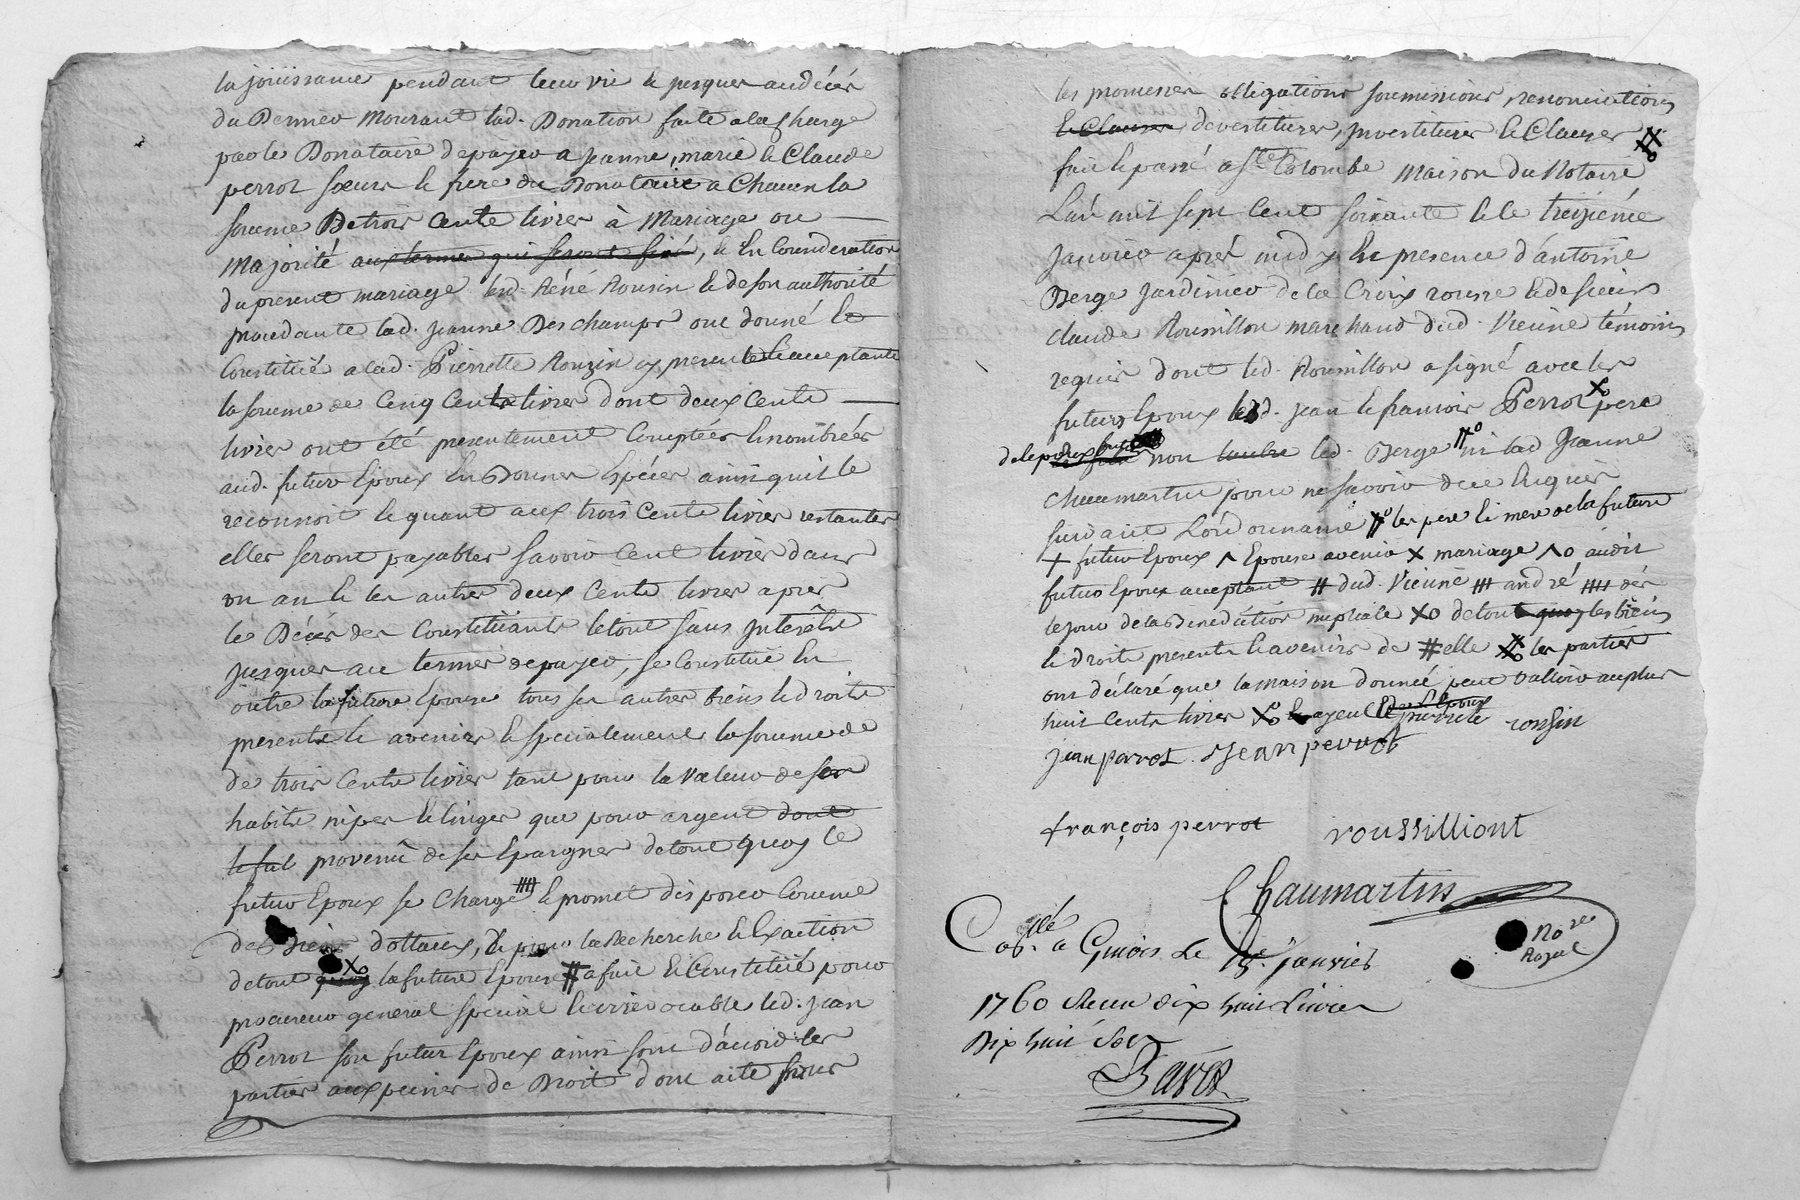 la joüissance pendant leur vie & jusques au décés
du Dernier Mourant lad. Donation faite a la Charge
par le Donataire de payer a jeanne, marie & Claude
perrot soeurs & frere du Donataire a Chacun la
somme De trois cents livres à Mariage ou
Majorité aux termes qui seront fixé, & En Consideration
du present mariage led. Réné Ronsin & de son authorité
procedante lad. jeanne Des champs ont donné &
Constitué a lad. Pierrette Ronzin cy presente & acceptante
la somme de Cinq Cents livres dont deux Cents
livres ont été presentement Comptées & nombrées
aud. futur Epoux En Bonnes Espéces ainsi qu'il le
reconnoit & quant aux trois Cents livres restantes
elles seront payables savoir Cent livres dans
un an & les autres deux Cents livres apres
le Décés des Constituants le tout sans Interêts
jusques au termes de payer, se Constitue En
outre la future Epouse tous ses autres biens & Droits
presents & avenirs & specialement la somme de
de trois Cents livres tant pour la Valeur de ses
habits nipes & linges que pour argent dont
le fut provenû de ses Epargnes de tout quoy le
futur Epoux se Charge #### & promet disposer Comme
des Biens dottaux, & pour la Recherche & Exaction
de tout quoy Xo la future Epouse # a fait & Constitué pour
procureur general special & irrevocable led. jean
Perrot son futur Epoux ainsi sont d'accord les
parties aux peines de Droit dont acte sous
les promesses obligations soumissions, renonciations
& Clauses, devestitures, investitures & Clauses
fait & passé a Ste Colombe Maison du Notaire
L'an mil sept Cent soixante & le treiziéme
janvier aprés midy En presence d'antoine
Berge jardinier de la Croix rousse & de sieur
claude Roussillon marchand dud. Vienne témoins
requis dont led. Roussillon a signé avec les
futurs Epoux lesd. jean & francois Perrot Xo pere
de l'epoux non led. Berge ni lad Jeanne
Chaumartin pour ne savoir de ce Enquis
suivant L'ordonnance les pere & mere de la future
+ futur Epoux ^ Epouse avenir x mariage ^o audit
futur Epoux acceptant # dud. Vienne ### andré #### dés
le jour de la Benediction nuptiale Xo de tout quoy les biens
& droits presents & avenirs de # elle les parties
ont déclaré que la maison donnée peut valloir au plus
huit Cents livres Xo & ayeul de l'Epoux
pierrete ronsin
jean parrot. Jean perrot
françois perrot roussilliont
Chaumartin
No.re
Royal
Con.llé a Givors Le 15.e janvier
1760 Receu dix huit Livres
Dix huit Sols